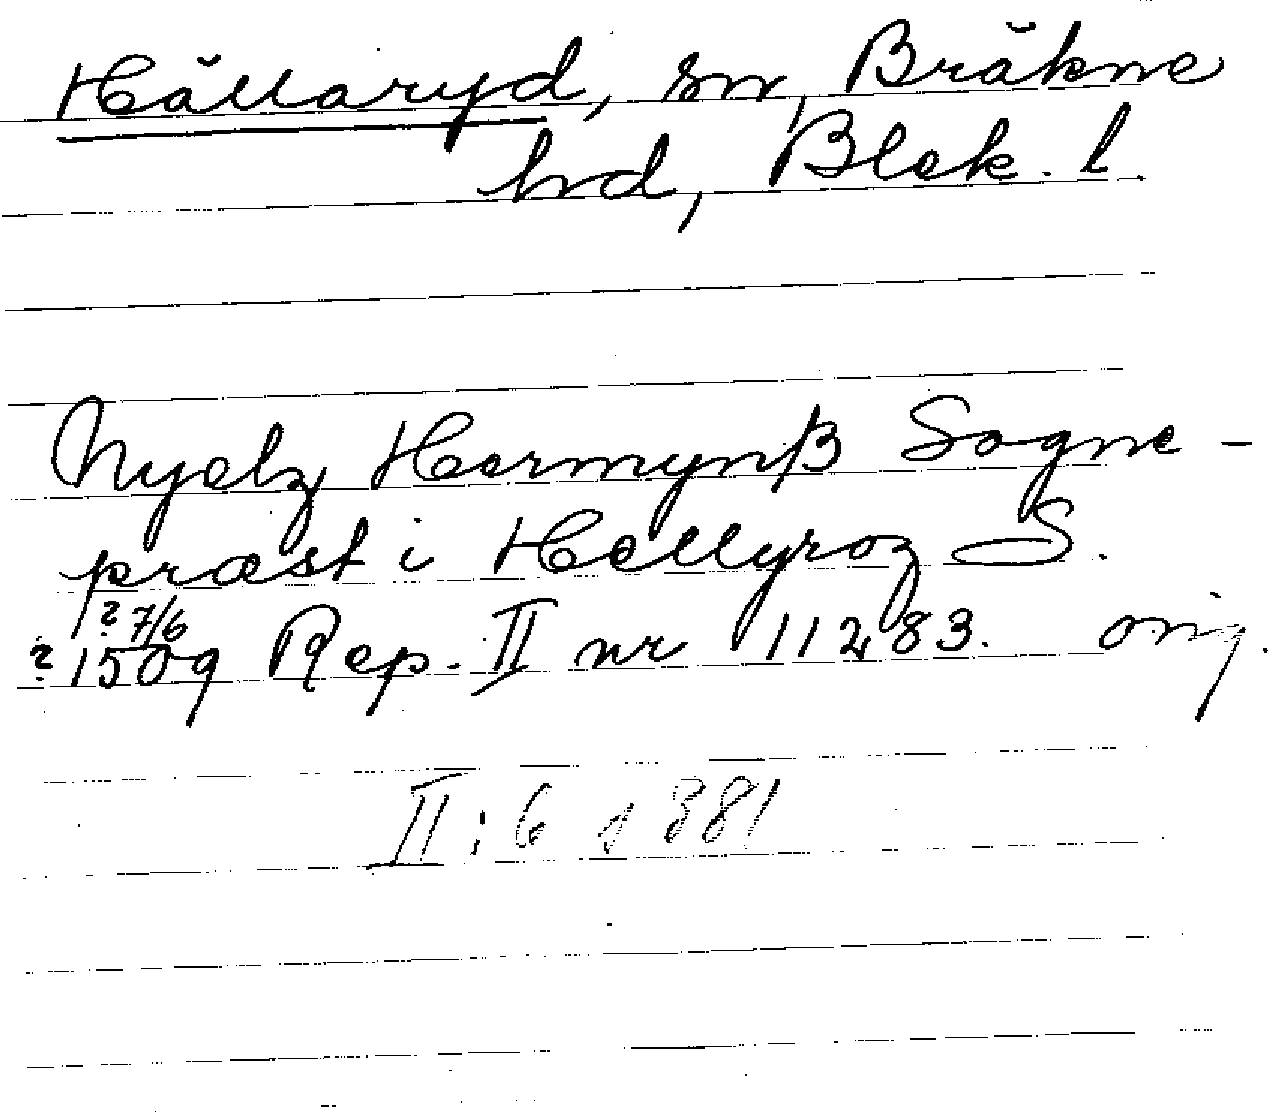 Hällaryd, sn, Bräkne
hrd, Blek. l.
Nyelz Hermynß Sogne-
præst i Hellyroz S.
? 7/6
? 1509 Rep. II nr 11283. orig.
II:6 s 381